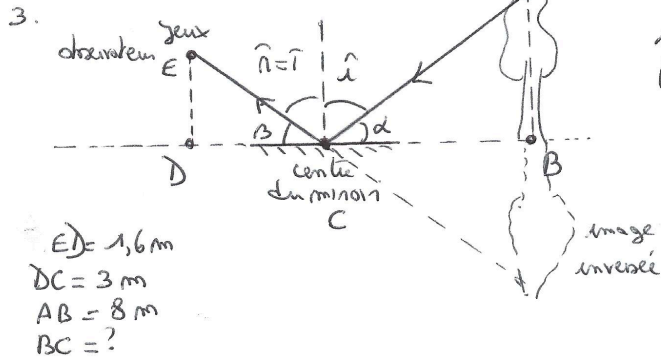 3.
yeux
observateur
E
n̂ = î
î
β
α
D
B
centre
du miroir
C
image
inversée
ED = 1,6 m
DC = 3 m
AB = 8 m
BC = ?